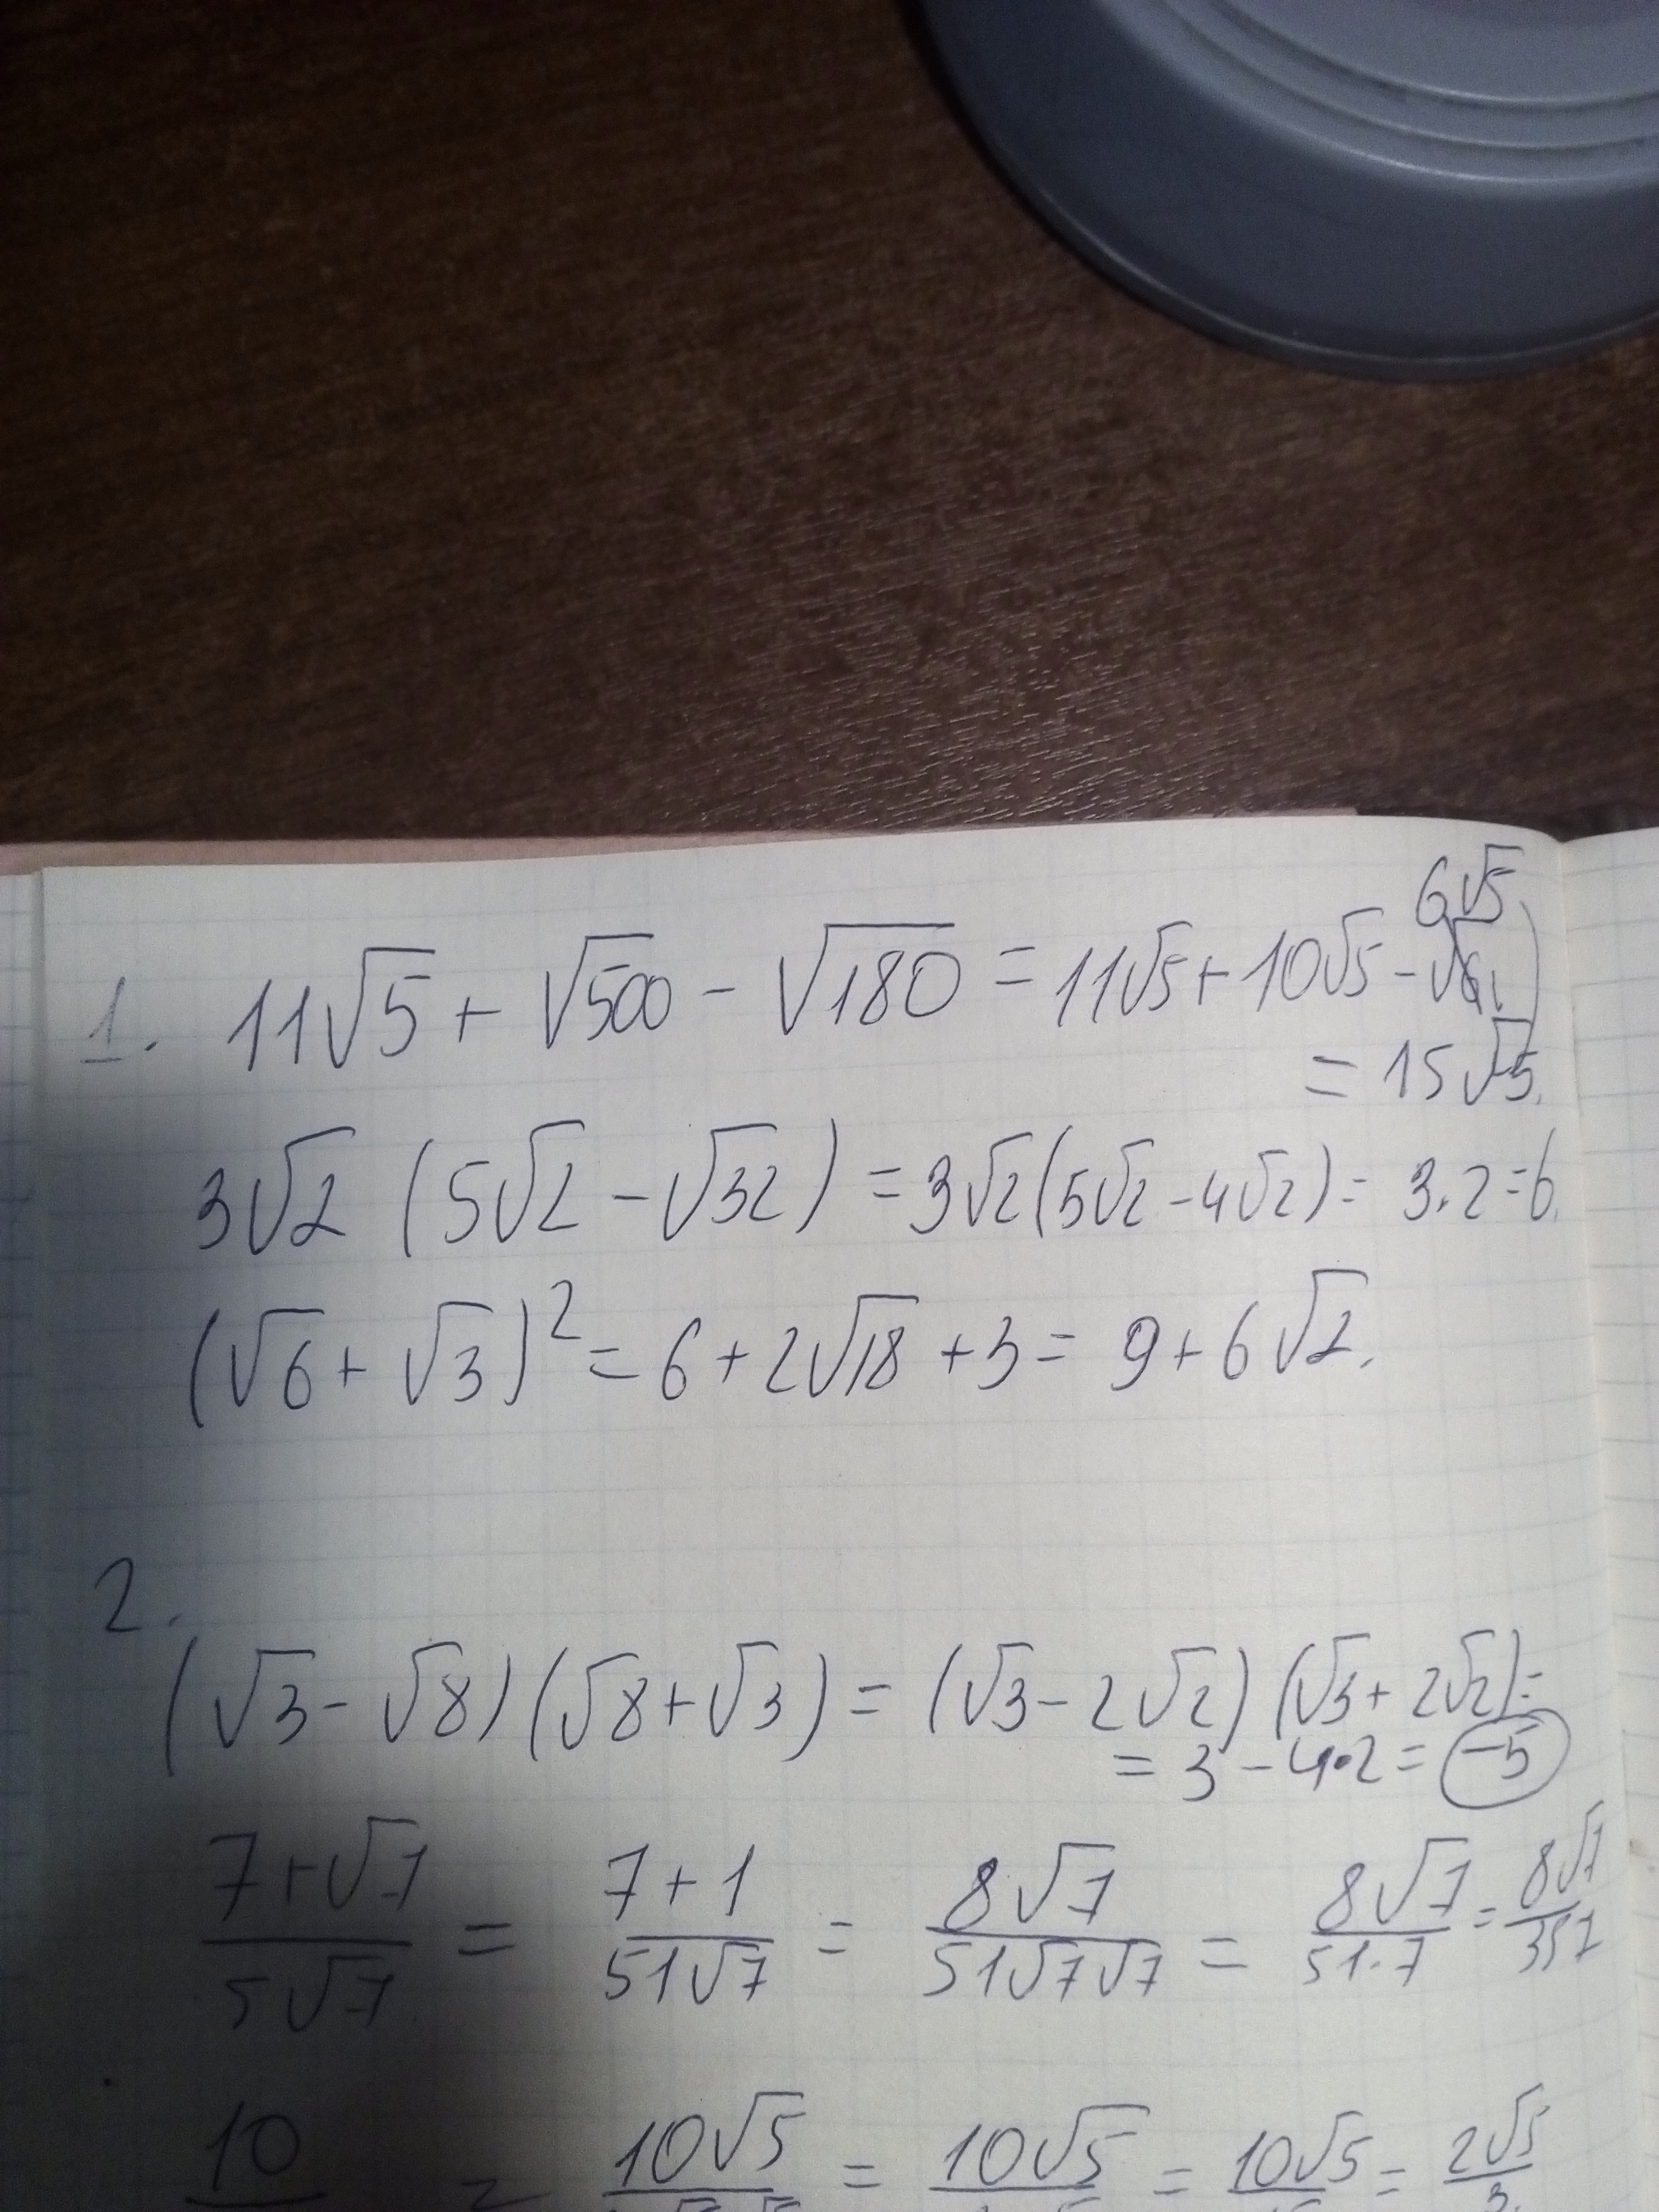 6√5
1. 11√5 + √500 - √180 = 11√5 + 10√5 -
= 15√5.
3√2 (5√2 - √32) = 3√2(5√2 - 4√2) = 3·2=6.
(√6 + √3)² = 6 + 2√18 + 3 = 9 + 6√2.
2.
(√3 - √8)(√8 + √3) = (√3 - 2√2)(√3 + 2√2) =
= 3 - 4·2 = -5
7+√7/5√7 = 7+1/51√7 = 8√7/51√7√7 = 8√7/51·7 = 8√7/357
10 = 10√5 = 10√5 = 10√5 = 2√5/3